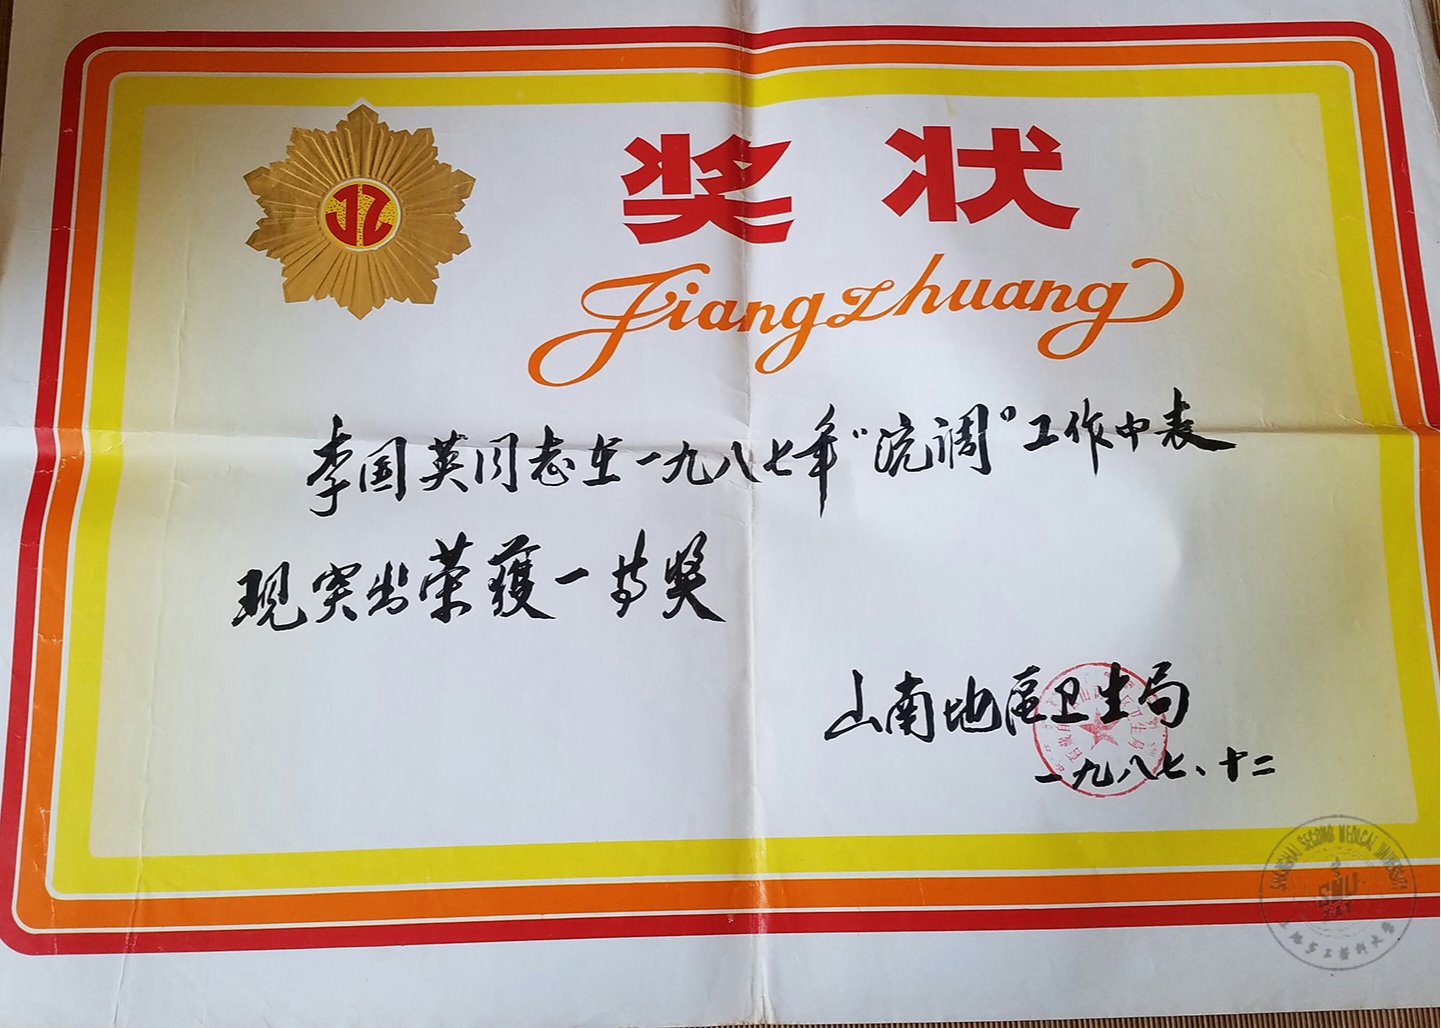 奖状
Jiangzhuang
李国英同志在一九八七年“流调”工作中表
现突出荣獲一等奖
山南地區卫生局
一九八七、十二
SHANGHAI SECOND MEDICAL UNIVERSITY
SMU